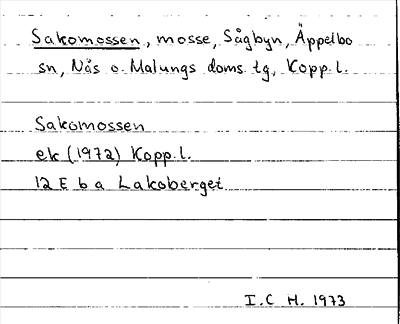 Sakomossen, mosse, Sågbyn, Äppelbo
sn, Nås o. Malungs doms. tg, Kopp. l.
Sakomossen
ek (1972) Kopp. l.
12 E b a Lakoberget
I. C H. 1973